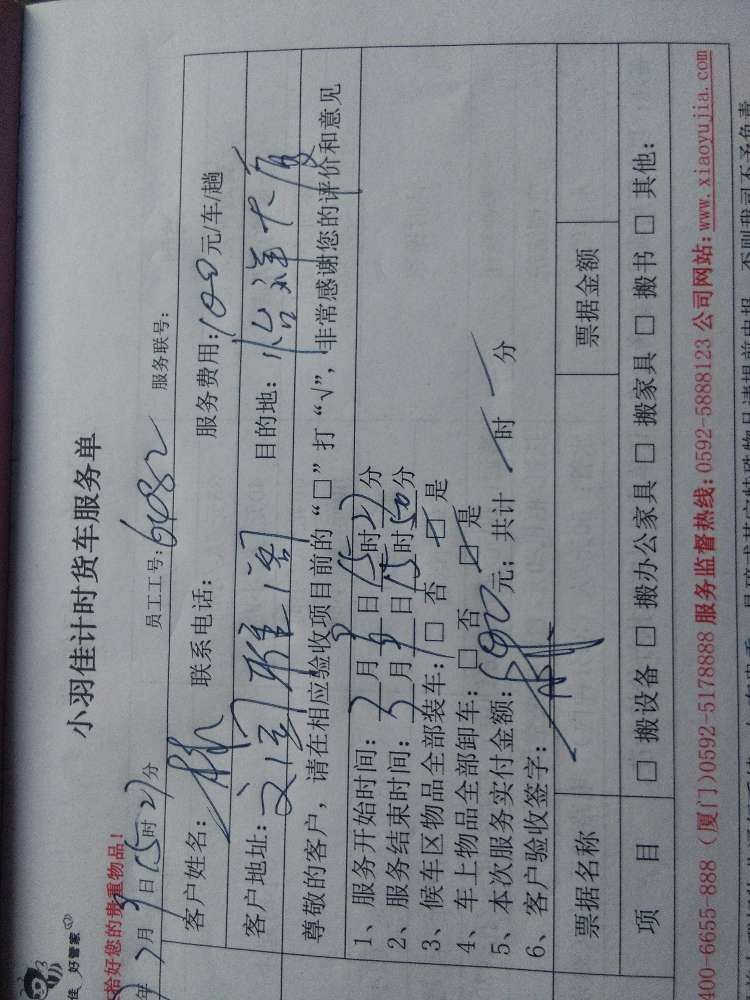 小羽佳计时货车服务单
佳 好管家
拾好您的贵重物品!
年 月 日15时27分 员工工号:6082 服务联号:
客户姓名:林 联系电话: 服务费用:100元/车/趟
客户地址: 阁 目的地:怡祥大厦
尊敬的客户,请在相应验收项目前的“□”打“√”,非常感谢您的评价和意见
1、服务开始时间: 月 日15时27分
2、服务结束时间: 月 日15时50分
3、候车区物品全部装车:□ 否 ☑ 是
4、车上物品全部卸车:□ 否 ☑ 是
5、本次服务实付金额: 元;共计 时 分
6、客户验收签字:
票据名称 票据金额
项 目 □ 搬设备 □ 搬办公家具 □ 搬家具 □ 搬书 □ 其他:
400-6655-888 (厦门)0592-5178888 服务监督热线:0592-5888123 公司网站:www.xiaoyujia.com